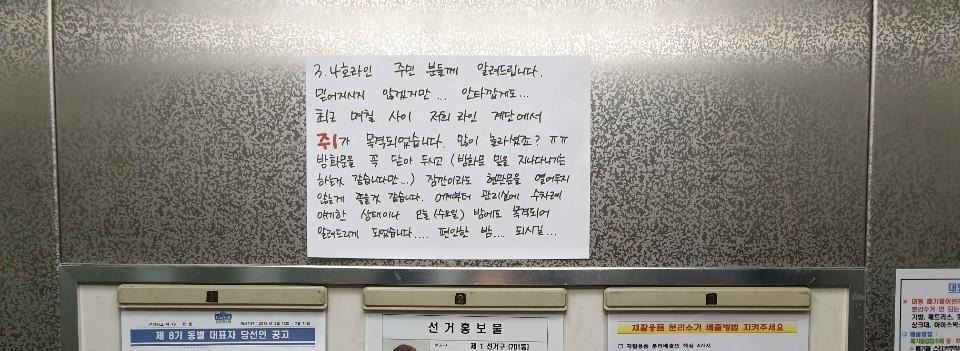 3. 4호라인 주민 분들께 알려드립니다.
믿어지시지 않겠지만... 안타깝게도...
최근 며칠 사이 저희 라인 계단에서
쥐가 목격되었습니다. 많이 놀라셨죠? ㅠㅠ
방화문을 꼭 닫아 두시고 (방화문 밑을 지나다니기는
하는것 같습니다만...) 잠깐이라도 현관문을 열어두지
않는게 좋을것 같습니다. 어제부터 관리실에 수차례
얘기한 상태이나 오늘(수요일) 밤에도 목격되어
알려드리게 되었습니다.... 편안한 밤.... 되시길...
1
2
3
제 8기 동별 대표자 당선인 공고
선거홍보물
제 1 선거구 (701동)
재활용품 분리수거 배출방법 지켜주세요
□ 재활용품 분리배출의 핵심 4가지
대형
가방, 매트리스,
싱크대, 아이스박스